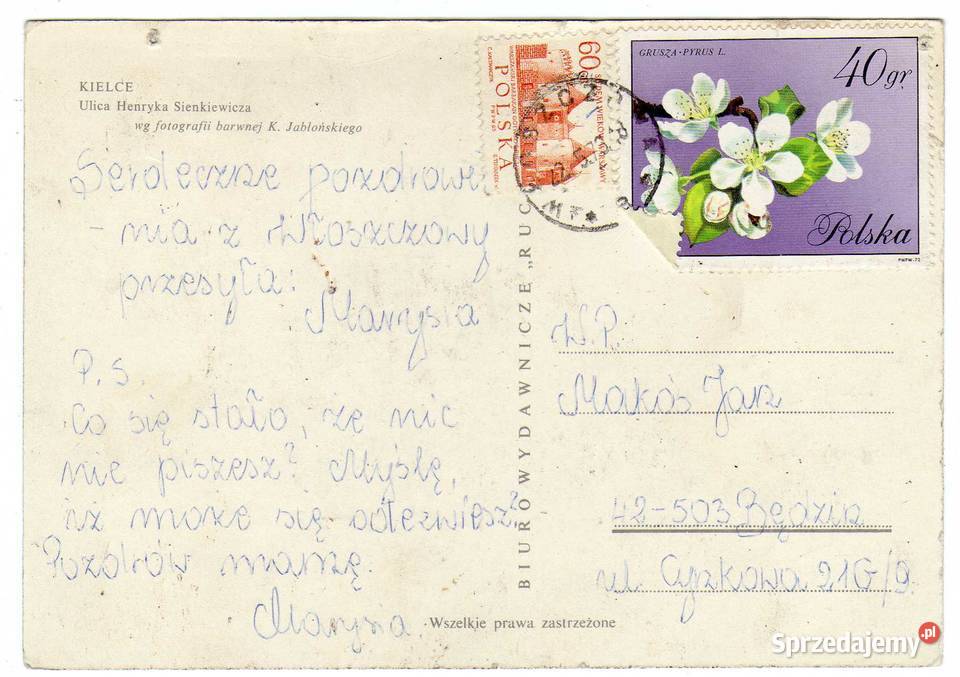 KIELCE
Ulica Henryka Sienkiewicza
wg fotografii barwnej K. Jabłońskiego
Serdeczne pozdrowie
- nia z Włoszczowy
przesyła:
Marysia
P. S.
Co się stało, że nic
nie piszesz? Myślę,
iż może się odezwiesz?
Pozdrów mamę.
Marysia.
BIUROWYDAWNICZE „RUC
60
POLSKA
GRUSZA · PYRUS L.
40 gr
Polska
PWPW-72
W.P.
Makoś
42-503 Będzin
ul. 21G/9.
Wszelkie prawa zastrzeżone
Sprzedajemy.pl